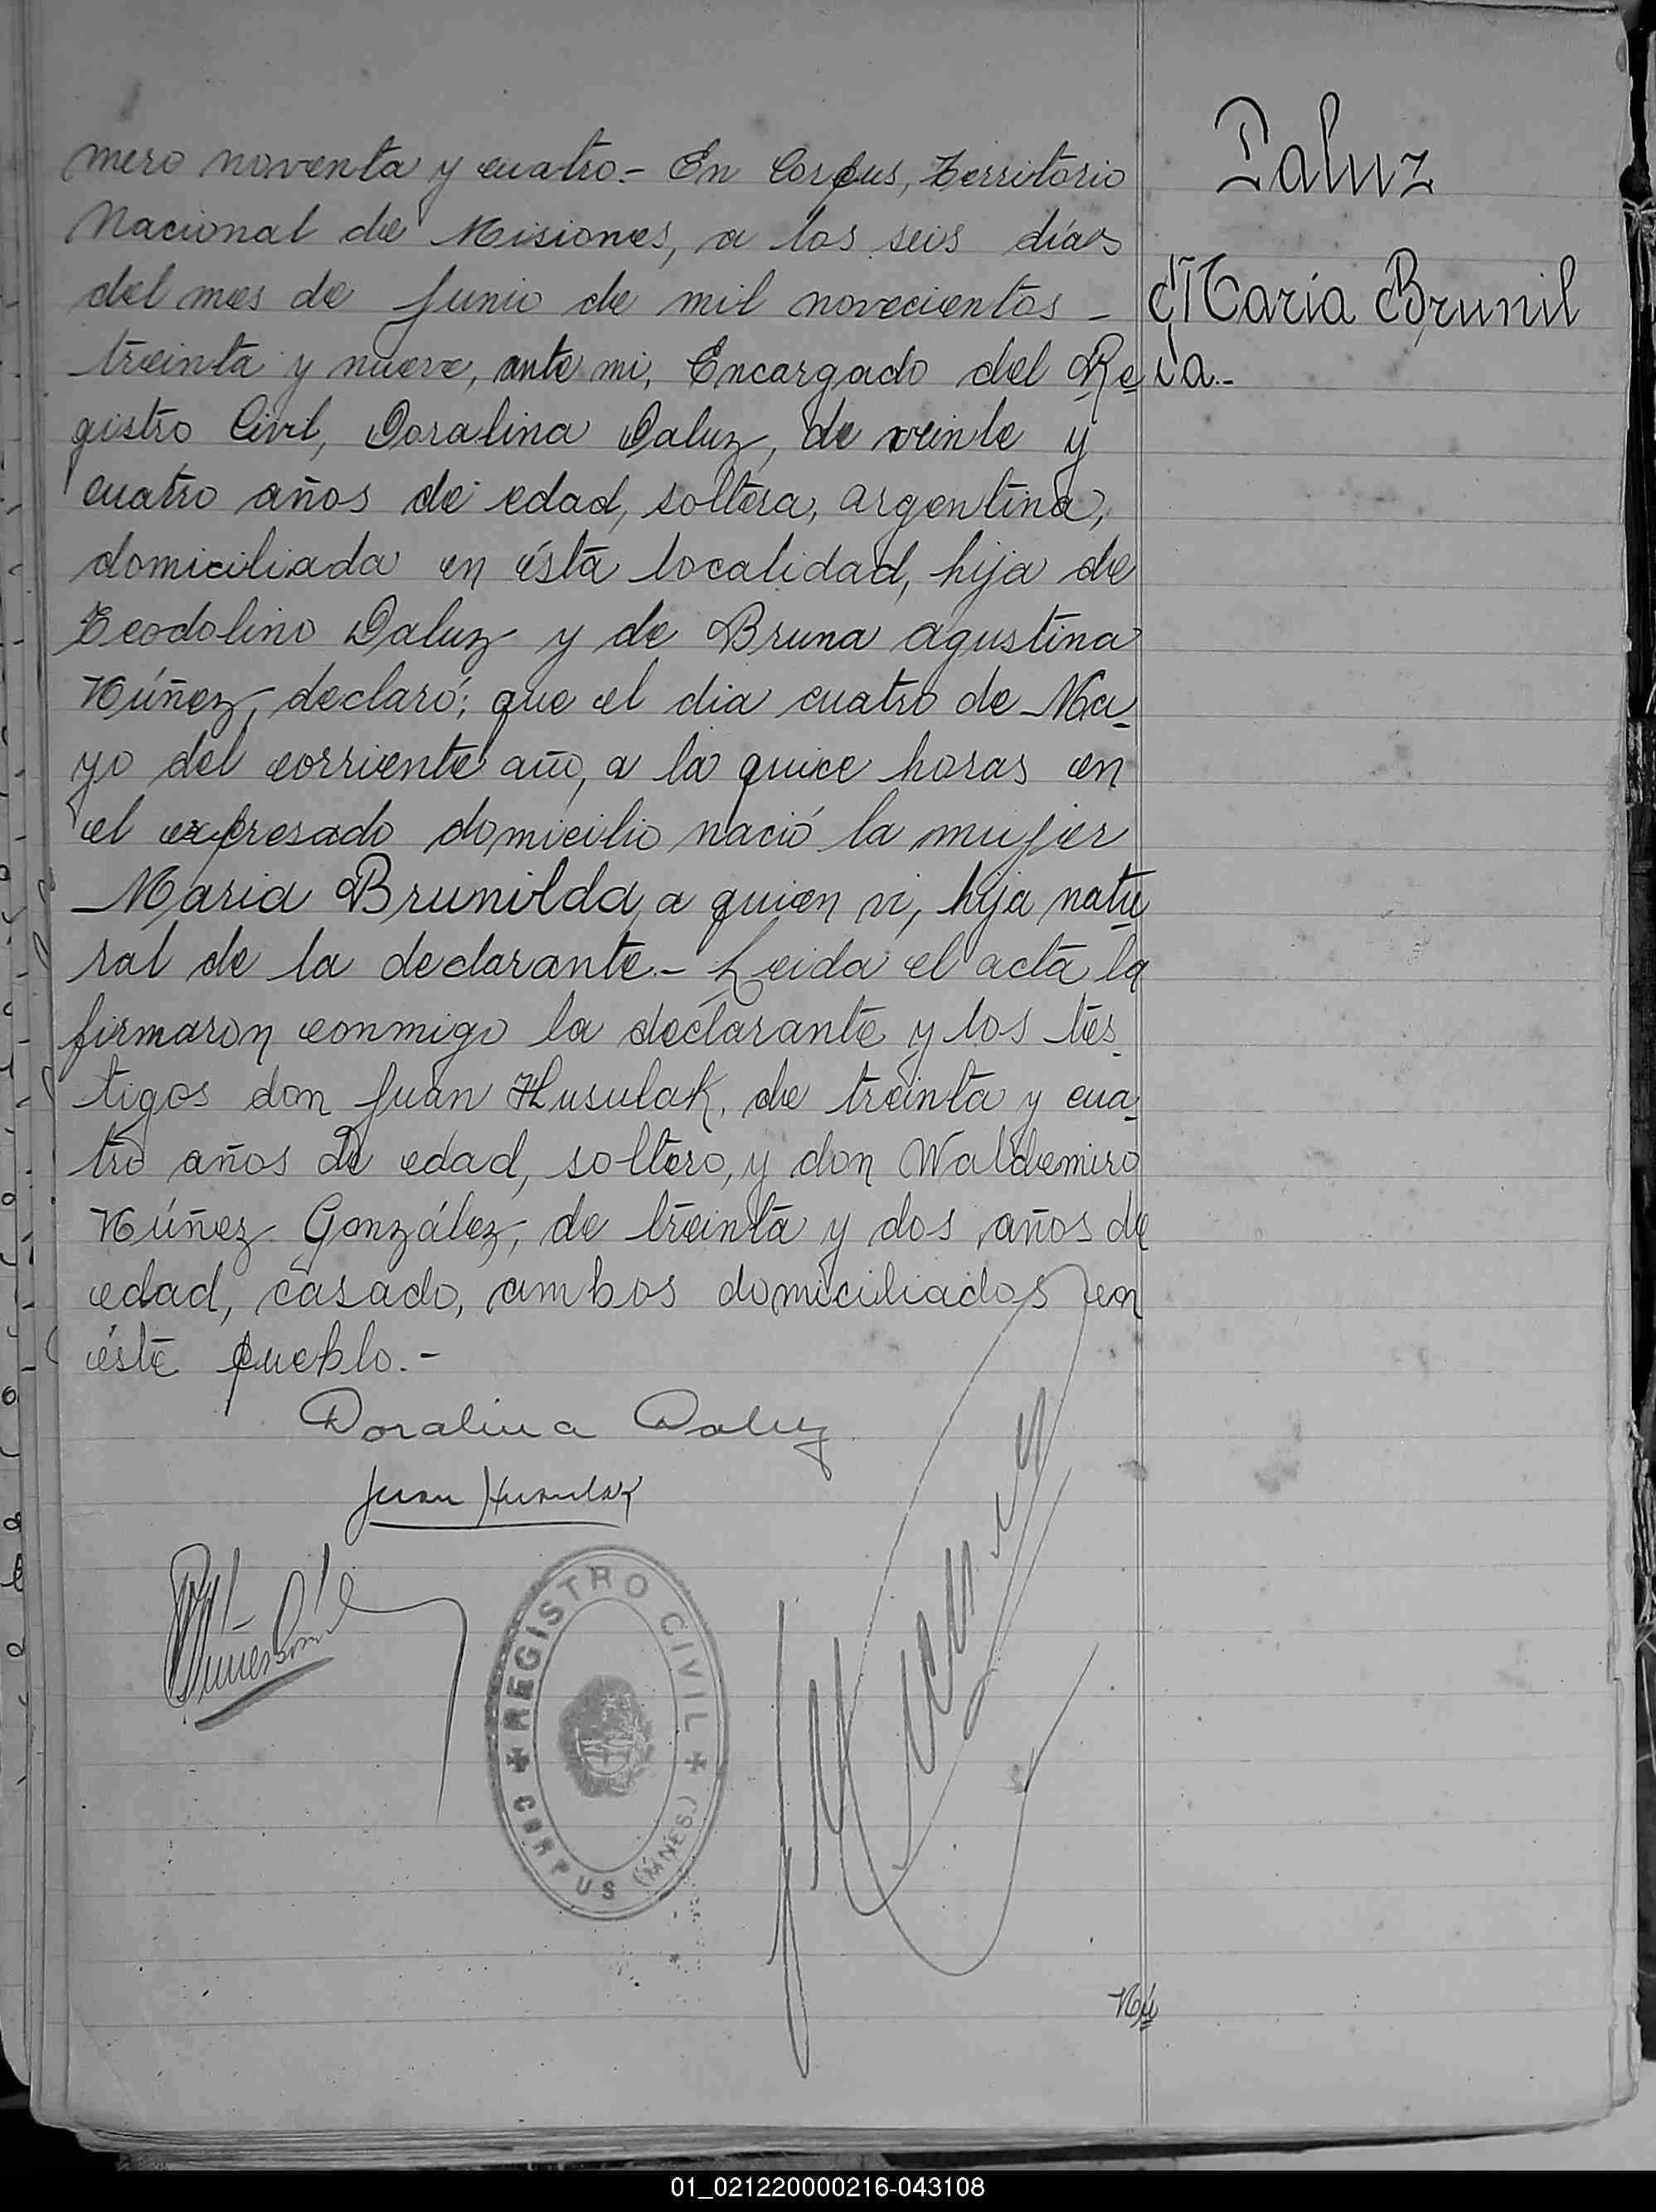 mero noventa y cuatro.- En Corpus, Territorio
Nacional de Misiones, a los seis días
del mes de Junio de mil novecientos -
treinta y nueve, ante mi, Encargado del Re
gistro Civil, Doralina Daluz, de veinte y
cuatro años de edad, soltera, argentina,
domiciliada en ésta localidad, hija de
Teodolino Daluz y de Bruna Agustina
Núñez, declaró; que el dia cuatro de Ma-
yo del corriente año, a la quice horas en
el expresado domicilio nació la mujer
Maria Brunilda, a quien vi, hija natu
ral de la declarante.- Leida el acta la
firmaron conmigo la declarante y los tes-
tigos don Juan Husulak, de treinta y cua-
tro años de edad, soltero, y don Waldemiro
Núñez González, de treinta y dos años de
edad, casado, ambos domiciliados en
éste pueblo.-
Daluz
Maria Brunil
da.-
Doralina Daluz
Juan Husulak
REGISTRO CIVIL
CORPUS (MNES.)
Nú
01_021220000216-043108